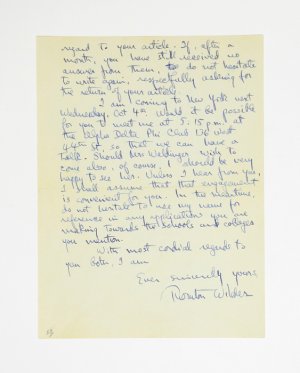 regard to your article. If, after a
month, you have still received no
answer from them, do not hesitate
to write again, respectfully asking for
the return of your article.
I am coming to New York next
Wednesday, Oct 4th. Would it be possible
for you to meet me at 5:15 p.m. at
the Alpha Delta Phi Club, West
44th St, so that we can have a
talk. Should Mrs wish to
come also, of course, I should be very
happy to see her. Unless I hear from you,
I shall assume that that engagement
is convenient for you. In the meantime,
do not hesitate to use my name for
reference in any applications you are
making towards the schools and colleges
you mention.
With most cordial regards to
you both, I am
Ever sincerely yours,
Thornton Wilder